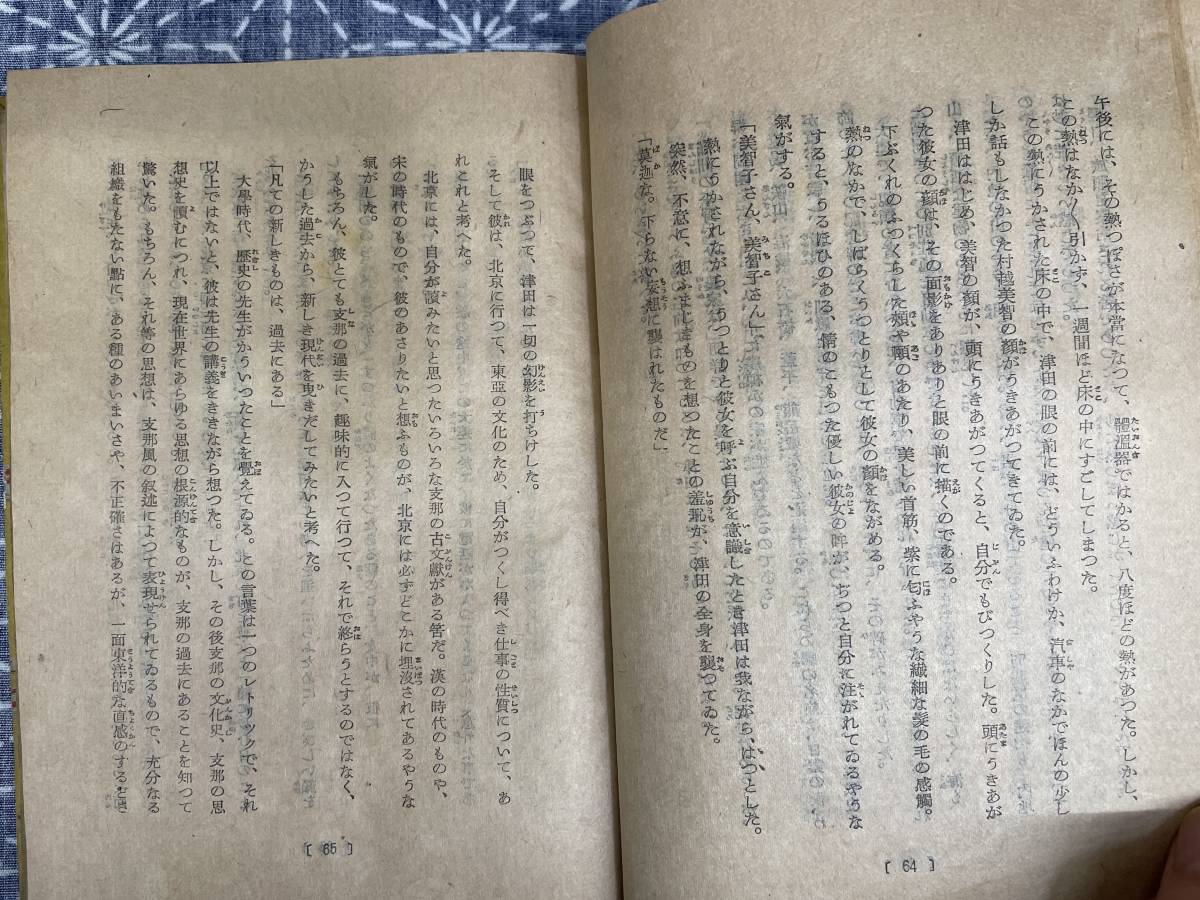 午後には、その熱つぽさが本當になつて、體溫器ではかると、八度ほどの熱があつた。しかし、
この熱はなか〳〵引かず、一週間ほど床の中にすごしてしまつた。
この熱にうかされた床の中で、津田の眼の前には、どういふわけか、汽車のなかでほんの少し
しか話もしなかつた村越美智の顏がうきあがつてきてゐた。
津田ははじめ、美智の顏が、頭にうきあがつてくると、自分でもびつくりした。頭にうきあが
つた彼女の顏は、その面影をありありと眼の前に描くのである。
下ぶくれのふつくらした頬や頤のあたり、美しい首筋、紫に匂ふやうな纖細な髮の毛の感觸。
熱のなかで、しばらくうつとりとして彼女の顏をながめる。
すると、うるほひのある、情のこもつた優しい彼女の眸が、ぢつと自分に注がれてゐるやうな
氣がする。
「美智子さん、美智子さん」
熱にうかされながら、うつとりと彼女を呼ぶ自分を意識したとき津田は我ながら、はつとした。
突然、不意に、想ふまじきものを想つたことの羞恥が、津田の全身を襲つてゐた。
「莫迦な。下らない妄想に襲はれたものだ」
[ 64 ]
眼をつぶつて、津田は一切の幻影を打ちけした。
そして彼は、北京に行つて、東亞の文化のため、自分がつくし得べき仕事の性質について、あ
れこれと考へた。
北京には、自分が讀みたいと思つたいろいろな支那の古文獻がある筈だ。漢の時代のものや、
宋の時代のもので、彼のあさりたいと想ふものが、北京には必ずどこかに埋沒されてあるやうな
氣がした。
もちろん、彼とても支那の過去に、趣味的に入つて行つて、それで終らうとするのではなく、
かうした過去から、新しき現代を曳きだしてみたいと考へた。
「凡ての新しきものは、過去にある」
大學時代、歷史の先生がかういつたことを覺えてゐる。この言葉は一つのレトリツクで、それ
以上ではないと、彼は先生の講義をききながら想つた。しかし、その後支那の文化史、支那の思
想史を讀むにつれ、現在世界にあらゆる思想の根源的なものが、支那の過去にあることを知つて
驚いた。もちろん、それ等の思想は、支那風の叙述によつて表現せられてゐるもので、充分なる
組織をもたない點に、ある種のあいまいさや、不正確さはあるが、一面東洋的な直感のするどさ
[ 65 ]